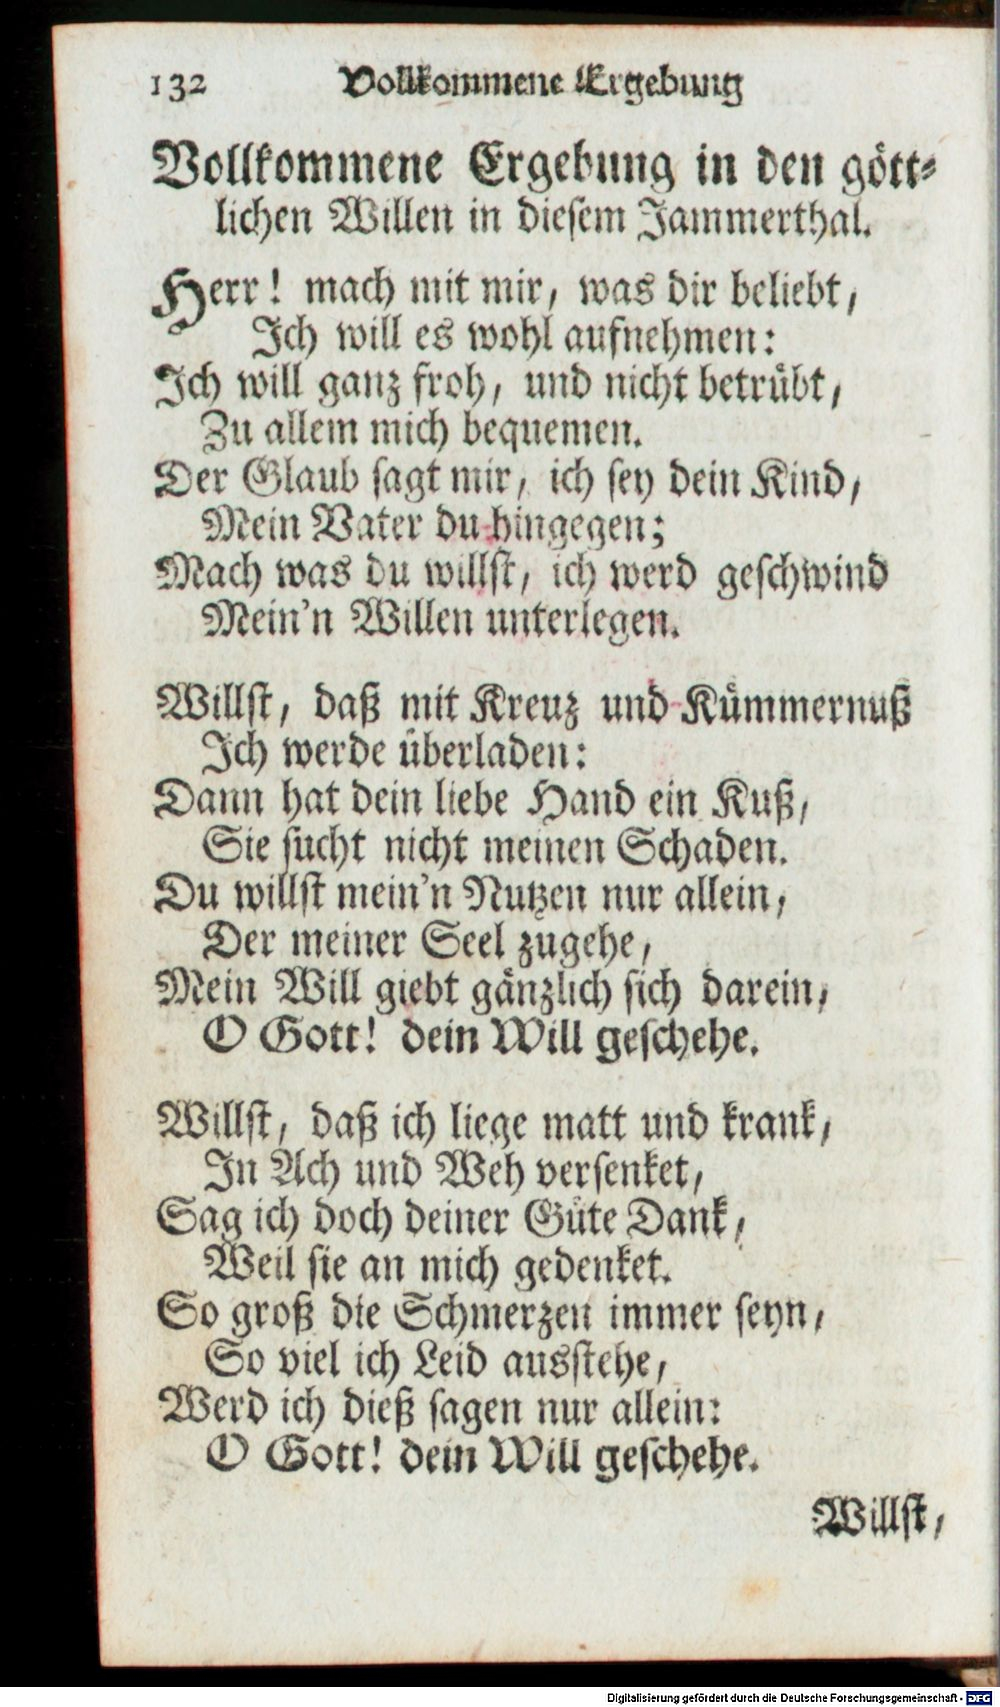 132 Vollkommene Ergebung
Vollkommene Ergebung in den gött-
lichen Willen in diesem Jammerthal.
Herr! mach mit mir, was dir beliebt,
Ich will es wohl aufnehmen:
Ich will ganz froh, und nicht betrübt,
Zu allem mich bequemen.
Der Glaub sagt mir, ich sey dein Kind,
Mein Vater du hingegen;
Mach was du willst, ich werd geschwind
Mein'n Willen unterlegen.
Willst, daß mit Kreuz und Kümmernuß
Ich werde überladen:
Dann hat dein liebe Hand ein Kuß,
Sie sucht nicht meinen Schaden.
Du willst mein'n Nutzen nur allein,
Der meiner Seel zugehe,
Mein Will giebt gänzlich sich darein,
O Gott! dein Will geschehe.
Willst, daß ich liege matt und krank,
In Ach und Weh versenket,
Sag ich doch deiner Güte Dank,
Weil sie an mich gedenket.
So groß die Schmerzen immer seyn,
So viel ich Leid ausstehe,
Werd ich dieß sagen nur allein:
O Gott! dein Will geschehe.
Willst,
Digitalisierung gefördert durch die Deutsche Forschungsgemeinschaft - DFG